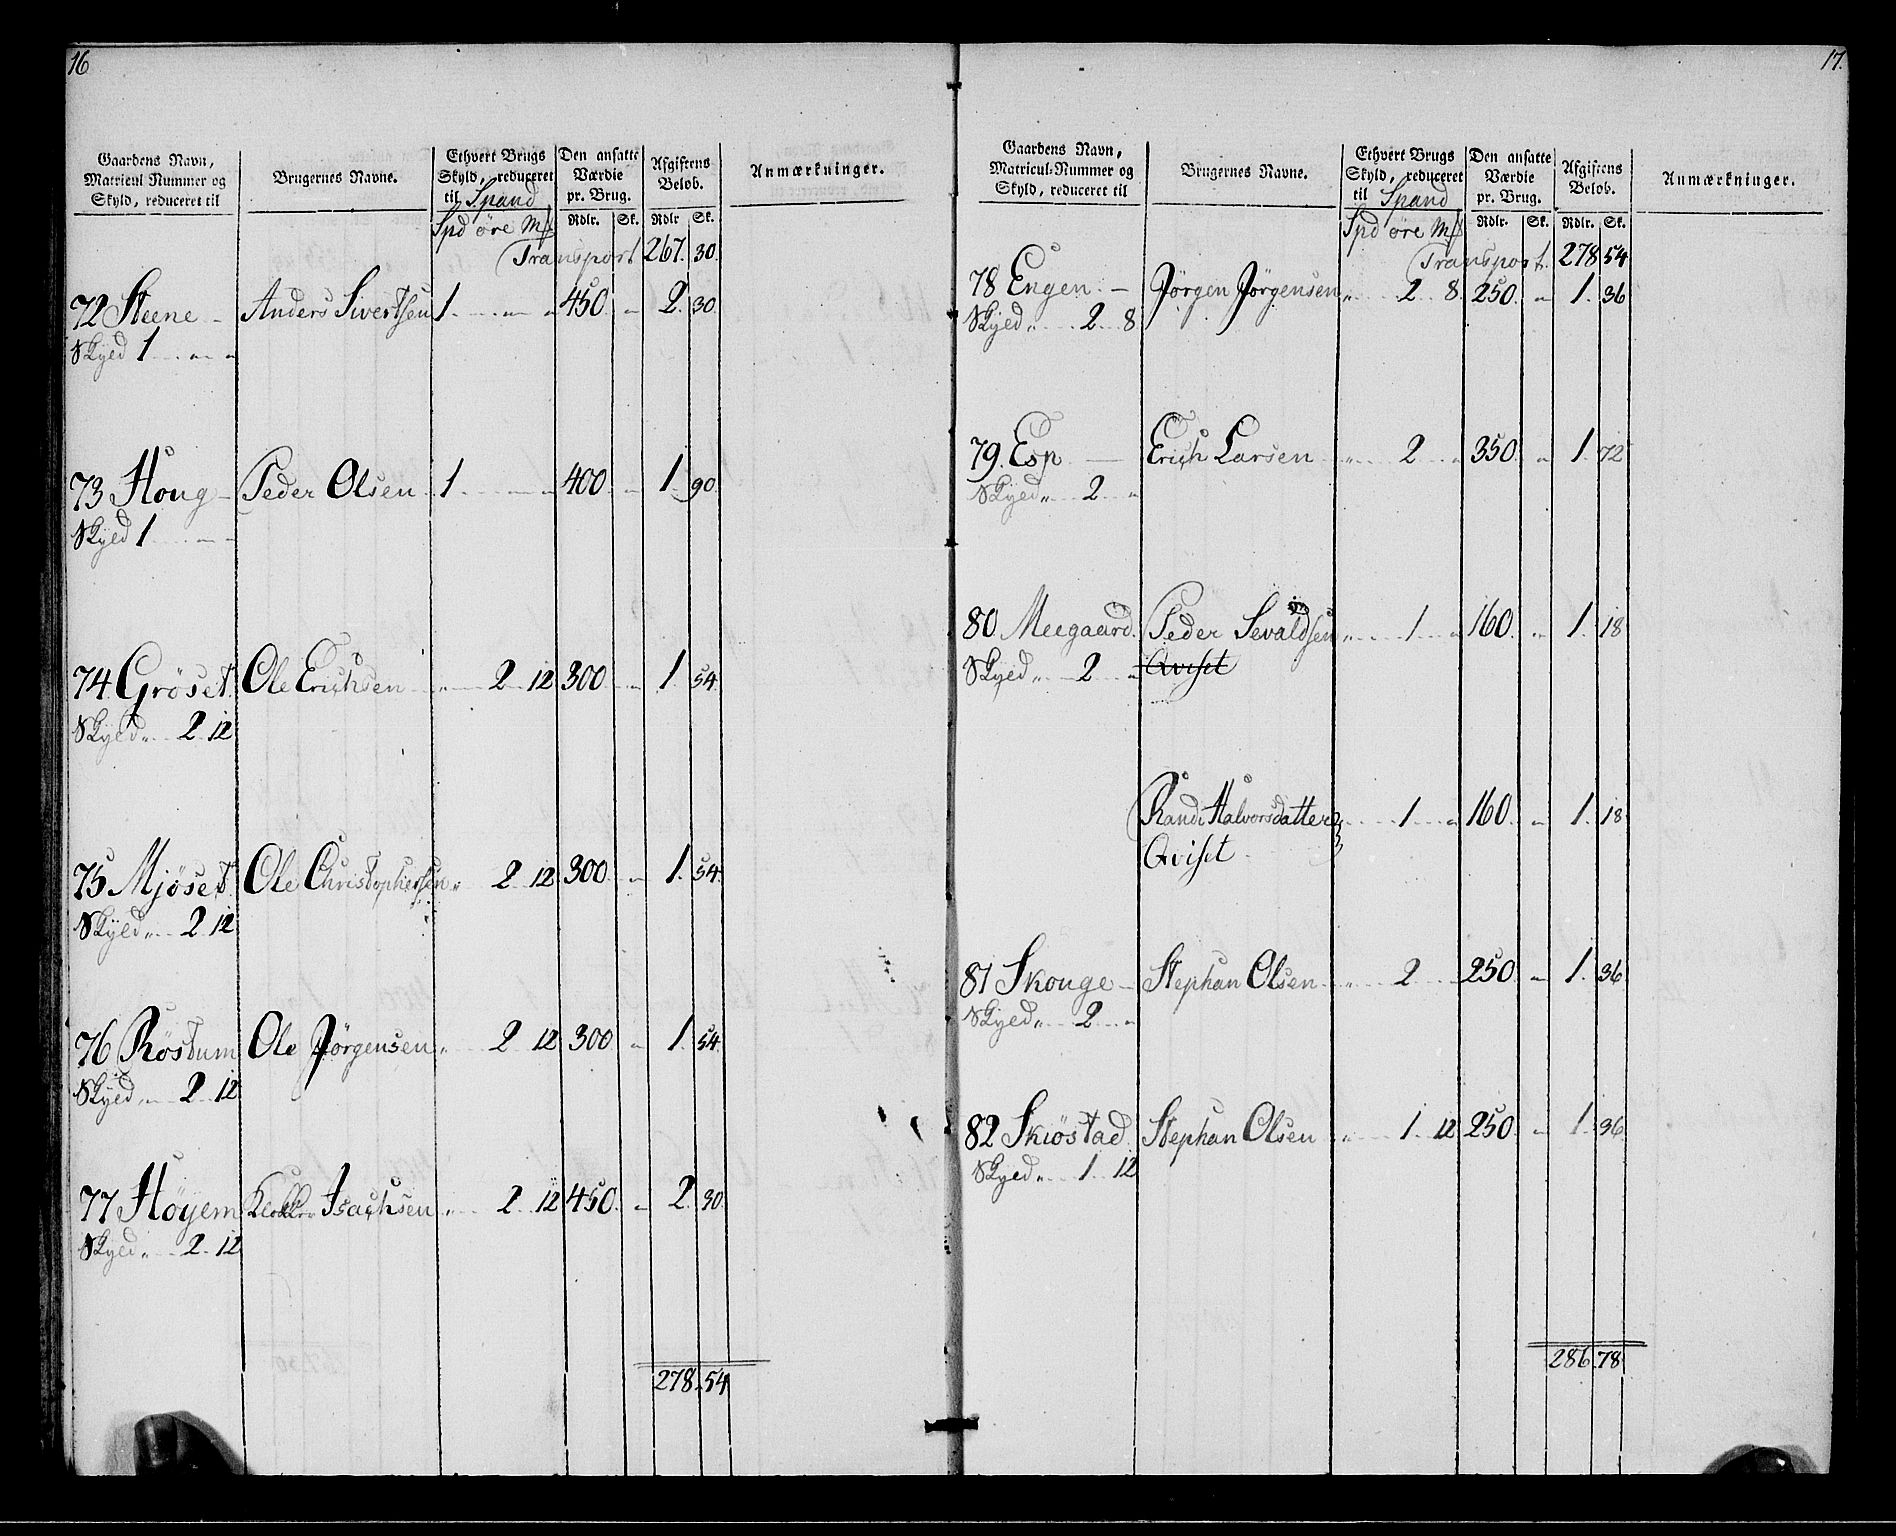 16
Gaardens Navn, Matricul Nummer og Skyld, reduceret til
Brugernes Navne.
Ethvert Brugs Skyld, reduceret til Spand
Den ansatte Værdie pr. Brug.
Afgiftens Beløb.
Anmærkninger.
Spd øre Mk Rdlr. Sk. Rdlr Sk.
Transport 267. 30.
72 Steene - Anders Sivertsen 1 . . . " " 450. " 2. 30.
Skyld 1 . . " "
73 Houg - Peder Olsen 1 . . . " " 400 " 1. 90.
Skyld 1 . . " "
74 Gröset. Ole Erichsen " 2 12 300 " 1. 54.
Skyld " 2 12
75 Mjöset. Ole Christophersen " 2 12 300 " 1. 54.
Skyld " 2 12
76 Röstum Ole Jörgensen " 2 12 300 " 1. 54.
Skyld " 2 12
77 Höyem Klokker Isachsen " 2 12 450. " 2. 30.
Skyld " 2 12
278. 54
17.
Gaardens Navn, Matricul-Nummer og Skyld, reduceret til
Brugernes Navne.
Ethvert Brugs Skyld, reduceret til Spand
Den ansatte Værdie pr. Brug.
Afgiftens Beløb.
Anmærkninger.
Spd øre Mk Rdlr. Sk. Rdlr. Sk.
Transport. 278 54
78 Engen - Jörgen Jörgensen " 2 8. 250. " 1. 36
Skyld " 2 8
79. Esp - Erich Larsen " 2 " 350. " 1. 72
Skyld " 2 "
80 Meegaard. Peder Sevaldsen " 1 " 160. " 1. 18
Skyld " 2 " Qviset
Randi Halvorsdatter " 1 " 160. " 1. 18
Qviset
81 Skouge - Stephan Olsen " 2 " 250. " 1. 36
Skyld " 2 "
82 Skiöstad. Stephan Olsen " 1 12 250. " 1. 36.
Skyld " 1 12
286. 78